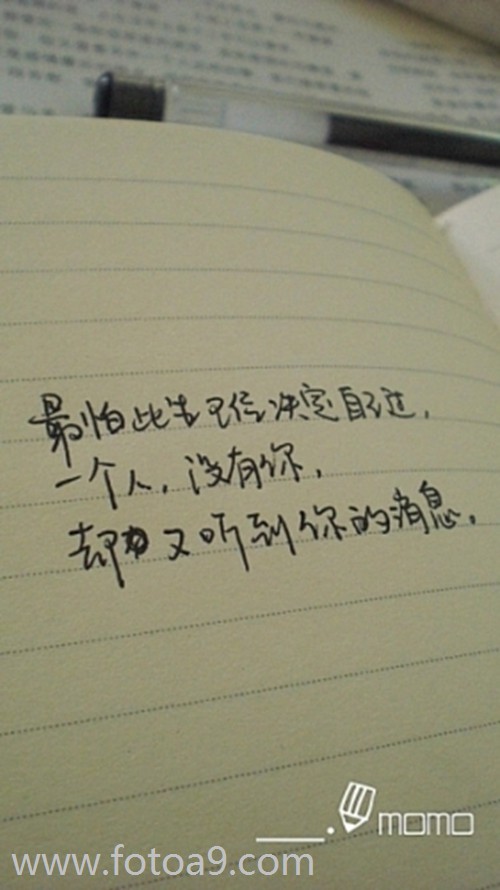 最怕此生已经决定自己过，
一个人，没有你，
却又听到你的消息。
momo
www.fotoa9.com